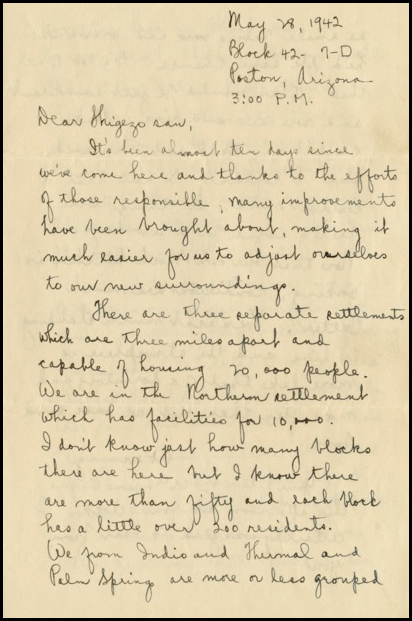 May 28, 1942
Block 42- 7-D
Poston, Arizona
3:00 P.M.
Dear Shigezo san,
It's been almost ten days since
we've come here and thanks to the efforts
of those responsible, many improvements
have been brought about, making it
much easier for us to adjust ourselves
to our new surroundings.
There are three separate settlements
which are three miles apart and
capable of housing 20,000 people.
We are in the Northern settlement
which has facilities for 10,000.
I don't know just how many blocks
there are here but I know there
are more than fifty and each block
has a little over 200 residents.
We from Indio and Thermal and
Palm Springs are more or less grouped